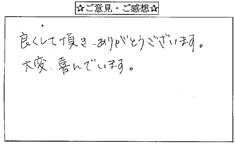 ☆ご意見・ご感想☆
良くして頂き、ありがとうございます。
大変、喜んでいます。